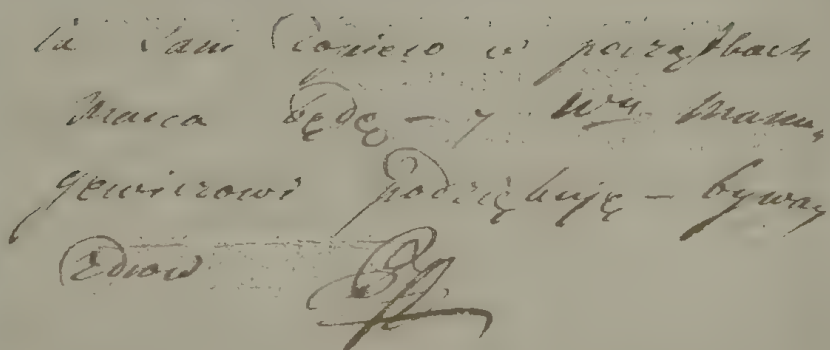 ia Pani Dopiero w początkach
Marca będę — 7 Wnu Mamu,
gewiczowi podziękuję — bywaj
Zdrów